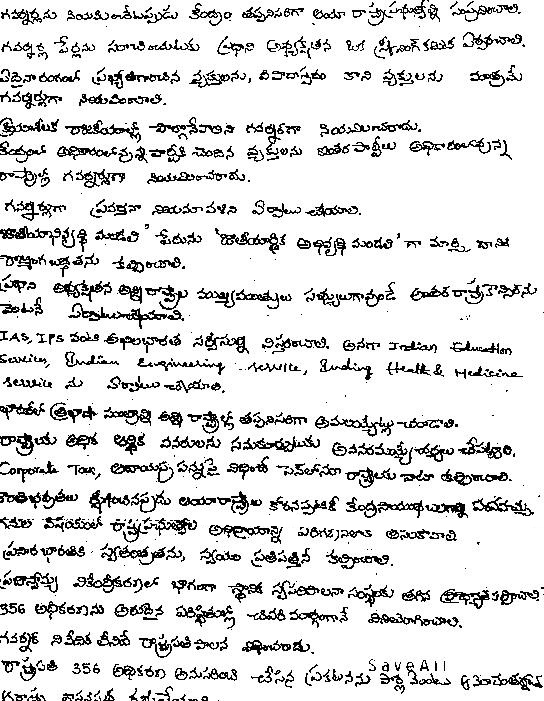 గవర్నర్లను నియమించేటప్పుడు కేంద్రం తప్పనిసరిగా ఆయా రాష్ట్రప్రభుత్వాల్ని సంప్రదించాలి.
గవర్నర్ల పేర్లను సూచించుటకు ప్రధాని అధ్యక్షతన ఒక స్క్రీనింగ్ కమిటి ఏర్పరచాలి.
ఏదైనా రంగంలో ప్రఖ్యాతిగాంచిన వ్యక్తులను, వివాదాస్పదం కాని వ్యక్తులను మాత్రమే
గవర్నర్లుగా నియమించాలి.
క్రియాశీలక రాజకీయాల్లో పాల్గొనేవారిని గవర్నర్‌గా నియమించరాదు.
కేంద్రంలో అధికారంలోవున్న పార్టీకి చెందిన వ్యక్తులను ఇతర పార్టీలు అధికారంలోవున్న
రాష్ట్రాల్లో గవర్నర్లుగా నియమించరాదు.
గవర్నర్లుగా ప్రవర్తనా నియమావళిని ఏర్పాటు చేయాలి.
'జాతీయాభివృద్ధి మండలి' పేరును 'జాతీయార్థిక అభివృద్ధి మండలి' గా మార్చి దానికి
రాజ్యాంగబద్ధతను కల్పించాలి.
ప్రధాని అధ్యక్షతన అన్ని రాష్ట్రాల ముఖ్యమంత్రులు సభ్యులుగావుండే అంతర రాష్ట్రకౌన్సిల్‌ను
వెంటనే ఏర్పాటుచేయాలి.
IAS, IPS వంటి అఖిలభారత సర్వీసుల్ని విస్తరించాలి. అనగా Indian Education
Service, Indian Engineering service, Indian Health & Medicine
service ను ఏర్పాటు చేయాలి.
భారత్‌లో త్రిభాషా సూత్రాన్ని అన్ని రాష్ట్రాల్లో తప్పనిసరిగా అమలయ్యేట్లు చూడాలి.
రాష్ట్రాలకు అధిక ఆర్థిక వనరులను సమకూర్చుటకు అవసరమయ్యే చర్యలు చేపట్టాలి.
Corporate Tax, ఆదాయపు పన్నుపై విధించే సెస్‌లోనూ రాష్ట్రాలకు వాటా కల్పించాలి.
శాంతిభద్రతలు క్షీణించినప్పుడు ఆయారాష్ట్రాల కోరనప్పటికీ కేంద్రసాయుధబలగాల్ని పంపవచ్చు.
విషయంలో రాష్ట్రప్రభుత్వాల అభిప్రాయాన్ని పరిగణనలోకి తీసుకోవాలి
ప్రసార భారతికి స్వతంత్రతను, స్వయం ప్రతిపత్తిని కల్పించాలి.
ప్రజాస్వామ్య వికేంద్రీకరణలో భాగంగా స్థానిక స్వపరిపాలనా సంస్థలకు తగిన కల్పించాలి
356 అధికరణను అరుదైన పరిస్థితుల్లో చివరి మార్గంగానే వినియోగించాలి.
గవర్నర్ నివేదిక తీసుకొనే రాష్ట్రపతి పాలన విధించరాదు.
SaveAll
రాష్ట్రపతి 356 అధికరణ అనుసరించి చేసిన ప్రకటనను పార్లమెంటు